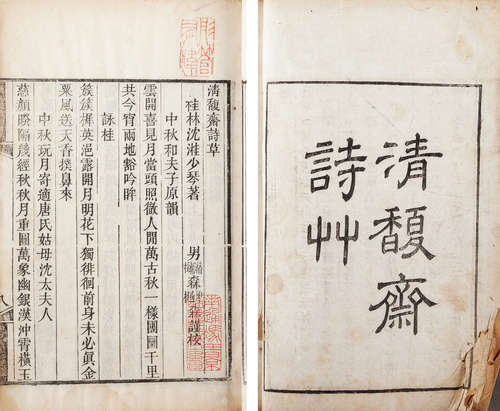 清馥齋
詩艸
清馥齋詩草
桂林沈湘少琴著
男 森 森 謹校
中秋和夫子原韻
雲開喜見月當頭照徹人間萬古秋一樣團圞千里
共今宵兩地豁吟眸
詠桂
簇簇穉英浥露開月明花下獨徘徊前身未必眞金
粟風送天香撲鼻來
中秋玩月寄適唐氏姑母沈太夫人
慈顏睽隔幾經秋秋月重圓萬象幽銀漢沖霄橫玉